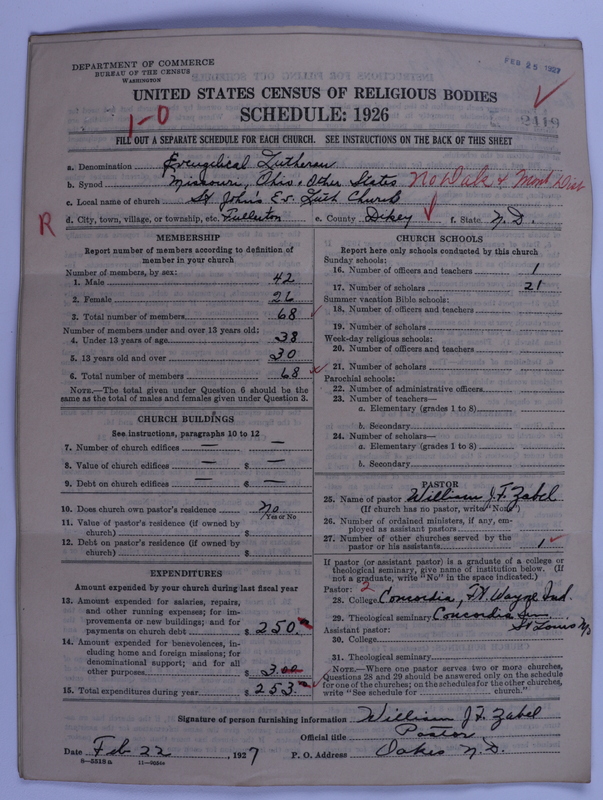 FEB 25 1927
DEPARTMENT OF COMMERCE
BUREAU OF THE CENSUS
WASHINGTON
UNITED STATES CENSUS OF RELIGIOUS BODIES
SCHEDULE: 1926
2119
1-0
FILL OUT A SEPARATE SCHEDULE FOR EACH CHURCH. SEE INSTRUCTIONS ON THE BACK OF THIS SHEET
a. Denomination Evangelical Lutheran
b. Synod Missouri, Ohio & Other States No Dak & Mont Dist
c. Local name of church St Johns Ev. Luth Church
R
d. City, town, village, or township, etc. Fullerton e. County Dikey f. State N. D.
MEMBERSHIP
Report number of members according to definition of
member in your church
Number of members, by sex:
1. Male 42
2. Female 26
3. Total number of members 68
Number of members under and over 13 years old:
4. Under 13 years of age 38
5. 13 years old and over 30
6. Total number of members 68
NOTE.—The total given under Question 6 should be the
same as the total of males and females given under Question 3.
CHURCH BUILDINGS
See instructions, paragraphs 10 to 12
7. Number of church edifices —
8. Value of church edifices — $ —
9. Debt on church edifices — $ —
10. Does church own pastor's residence? No
Yes or No
11. Value of pastor's residence (if owned by
church) $
12. Debt on pastor's residence (if owned by
church) $
EXPENDITURES
Amount expended by your church during last fiscal year
13. Amount expended for salaries, repairs,
and other running expenses; for im-
provements or new buildings; and for
payments on church debt $ 250.
14. Amount expended for benevolences, in-
cluding home and foreign missions; for
denominational support; and for all
other purposes $ 3.00
15. Total expenditures during year $ 253.
CHURCH SCHOOLS
Report here only schools conducted by this church
Sunday schools:
16. Number of officers and teachers 1
17. Number of scholars 21
Summer vacation Bible schools:
18. Number of officers and teachers
19. Number of scholars
Week-day religious schools:
20. Number of officers and teachers
21. Number of scholars
Parochial schools:
22. Number of administrative officers
23. Number of teachers—
a. Elementary (grades 1 to 8)
b. Secondary
24. Number of scholars—
a. Elementary (grades 1 to 8)
b. Secondary
PASTOR
25. Name of pastor William J. F. Zabel
(If church has no pastor, write "None")
26. Number of ordained ministers, if any, em-
ployed as assistant pastors
27. Number of other churches served by the
pastor or his assistants 1
If pastor (or assistant pastor) is a graduate of a college or
theological seminary, give name of institution below. (If
not a graduate, write "No" in the space indicated.)
Pastor: 2
28. College Concordia, Ft. Wayne Ind.
29. Theological seminary Concordia Sem.
St Louis Mo
Assistant pastor:
30. College
31. Theological seminary
NOTE.—Where one pastor serves two or more churches,
Questions 28 and 29 should be answered only on the schedule
for one of the churches; on the schedules for the other churches,
write "See schedule for church."
Signature of person furnishing information William J F. Zabel
Official title Pastor
Date Feb 22, 1927 P. O. Address Oakes N. D.
8-5318a